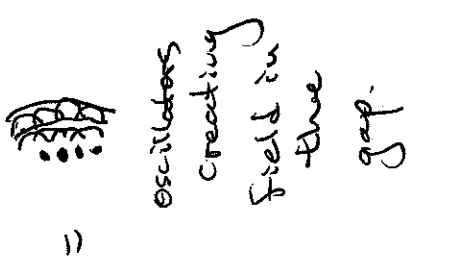 =
oscillators
creating
field in
the
gap.